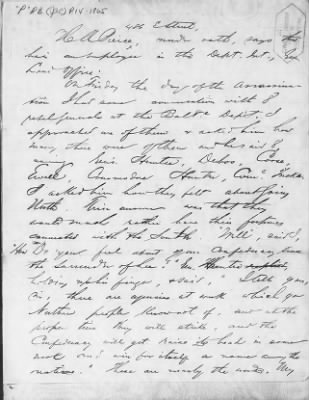 "P" R.B. (JAO) P.I.V. 1865
486 E Street.
H. A. Pierce, under oath, says that
he is an employee in the Dept. Int., Gen
Land Office:
On Friday the day of the Assassina-
tion I had some conversation with 8
rebel generals at the Balto Depot. I
approached one of them & asked him how
many there were of them and he said 8
among Gen's Hunton, Debos, Corse,
Ewell, Commodore Hunter, Com. Tucker
I asked him how they felt about going
North. His answer was that they
would much rather have their fortunes
connected with the South. "Well, said I,
"How do you feel about your Confederacy since
the surrender of Lee?" Gen. Hunton replied,
holding up his finger, & said, "I tell you,
Sir, there are agencies at work which you
Northern people know not of, and at the
proper time they will strike, and the
Confederacy will yet raise its head in some
way and win for itself a name among the
nations." These are nearly the words. My